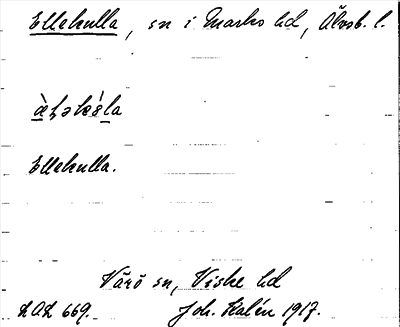 Ellekulla, sn i Marks hd, Älvsb. l.
Ellekulla.
Värö sn, Viske hd
LAL 669. Joh. Kalén 1917.